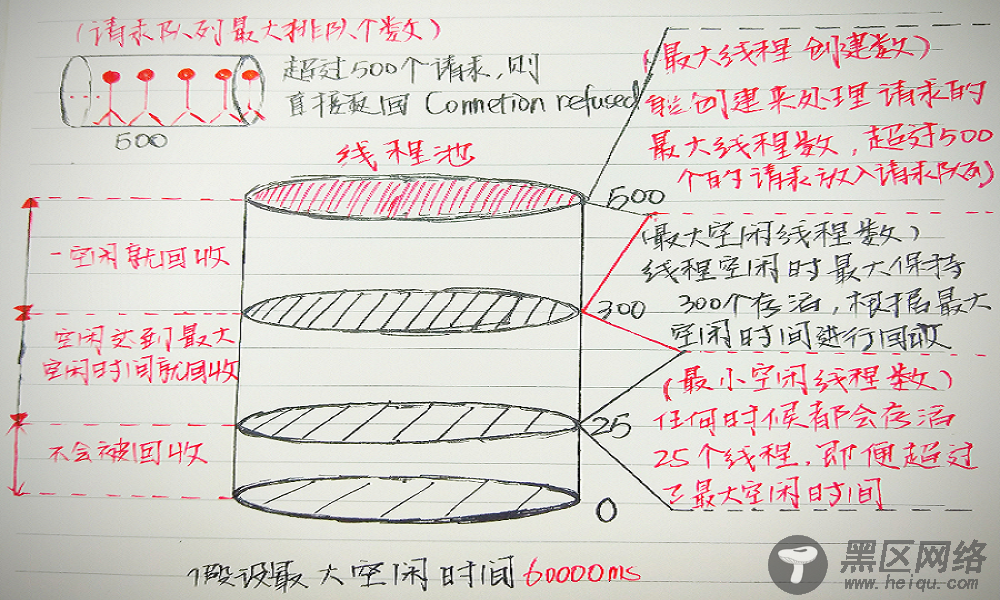 (请求队列最大排队个数)
超过500个请求,则
直接返回 Connetion refused
500
线程池
(最大线程创建数)
能创建来处理请求的
最大线程数,超过500
个的请求放入请求队列)
500
一空闲就回收
(最大空闲线程数)
线程空闲时最大保持
300个存活,根据最大
空闲时间进行回收
300
空闲达到最大
空闲时间就回收
(最小空闲线程数)
任何时候都会存活
25个线程,即便超过
了最大空闲时间
25
不会被回收
0
假设最大空闲时间60000ms
黑区网络
www.heiqu.com